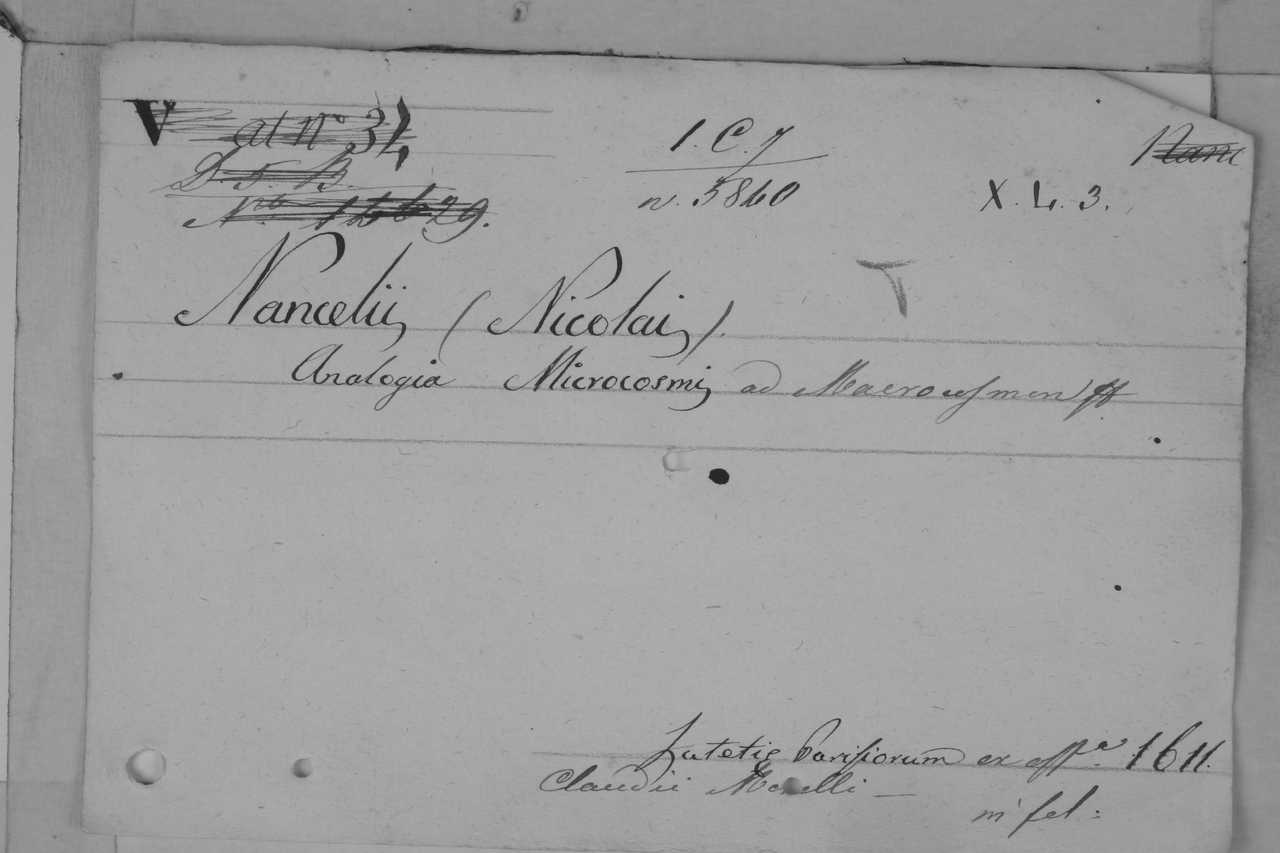 V at Nº 34
D. 5. B.
Nº 29.
1. C. 7
n. 5840
X. L. 3.
Nanc
Nancelii (Nicolai).
Analogia Microcosmi ad Macrocosmon
Lutetię Parisiorum ex offª. 1611.
Claudii Morelli —
in fol: